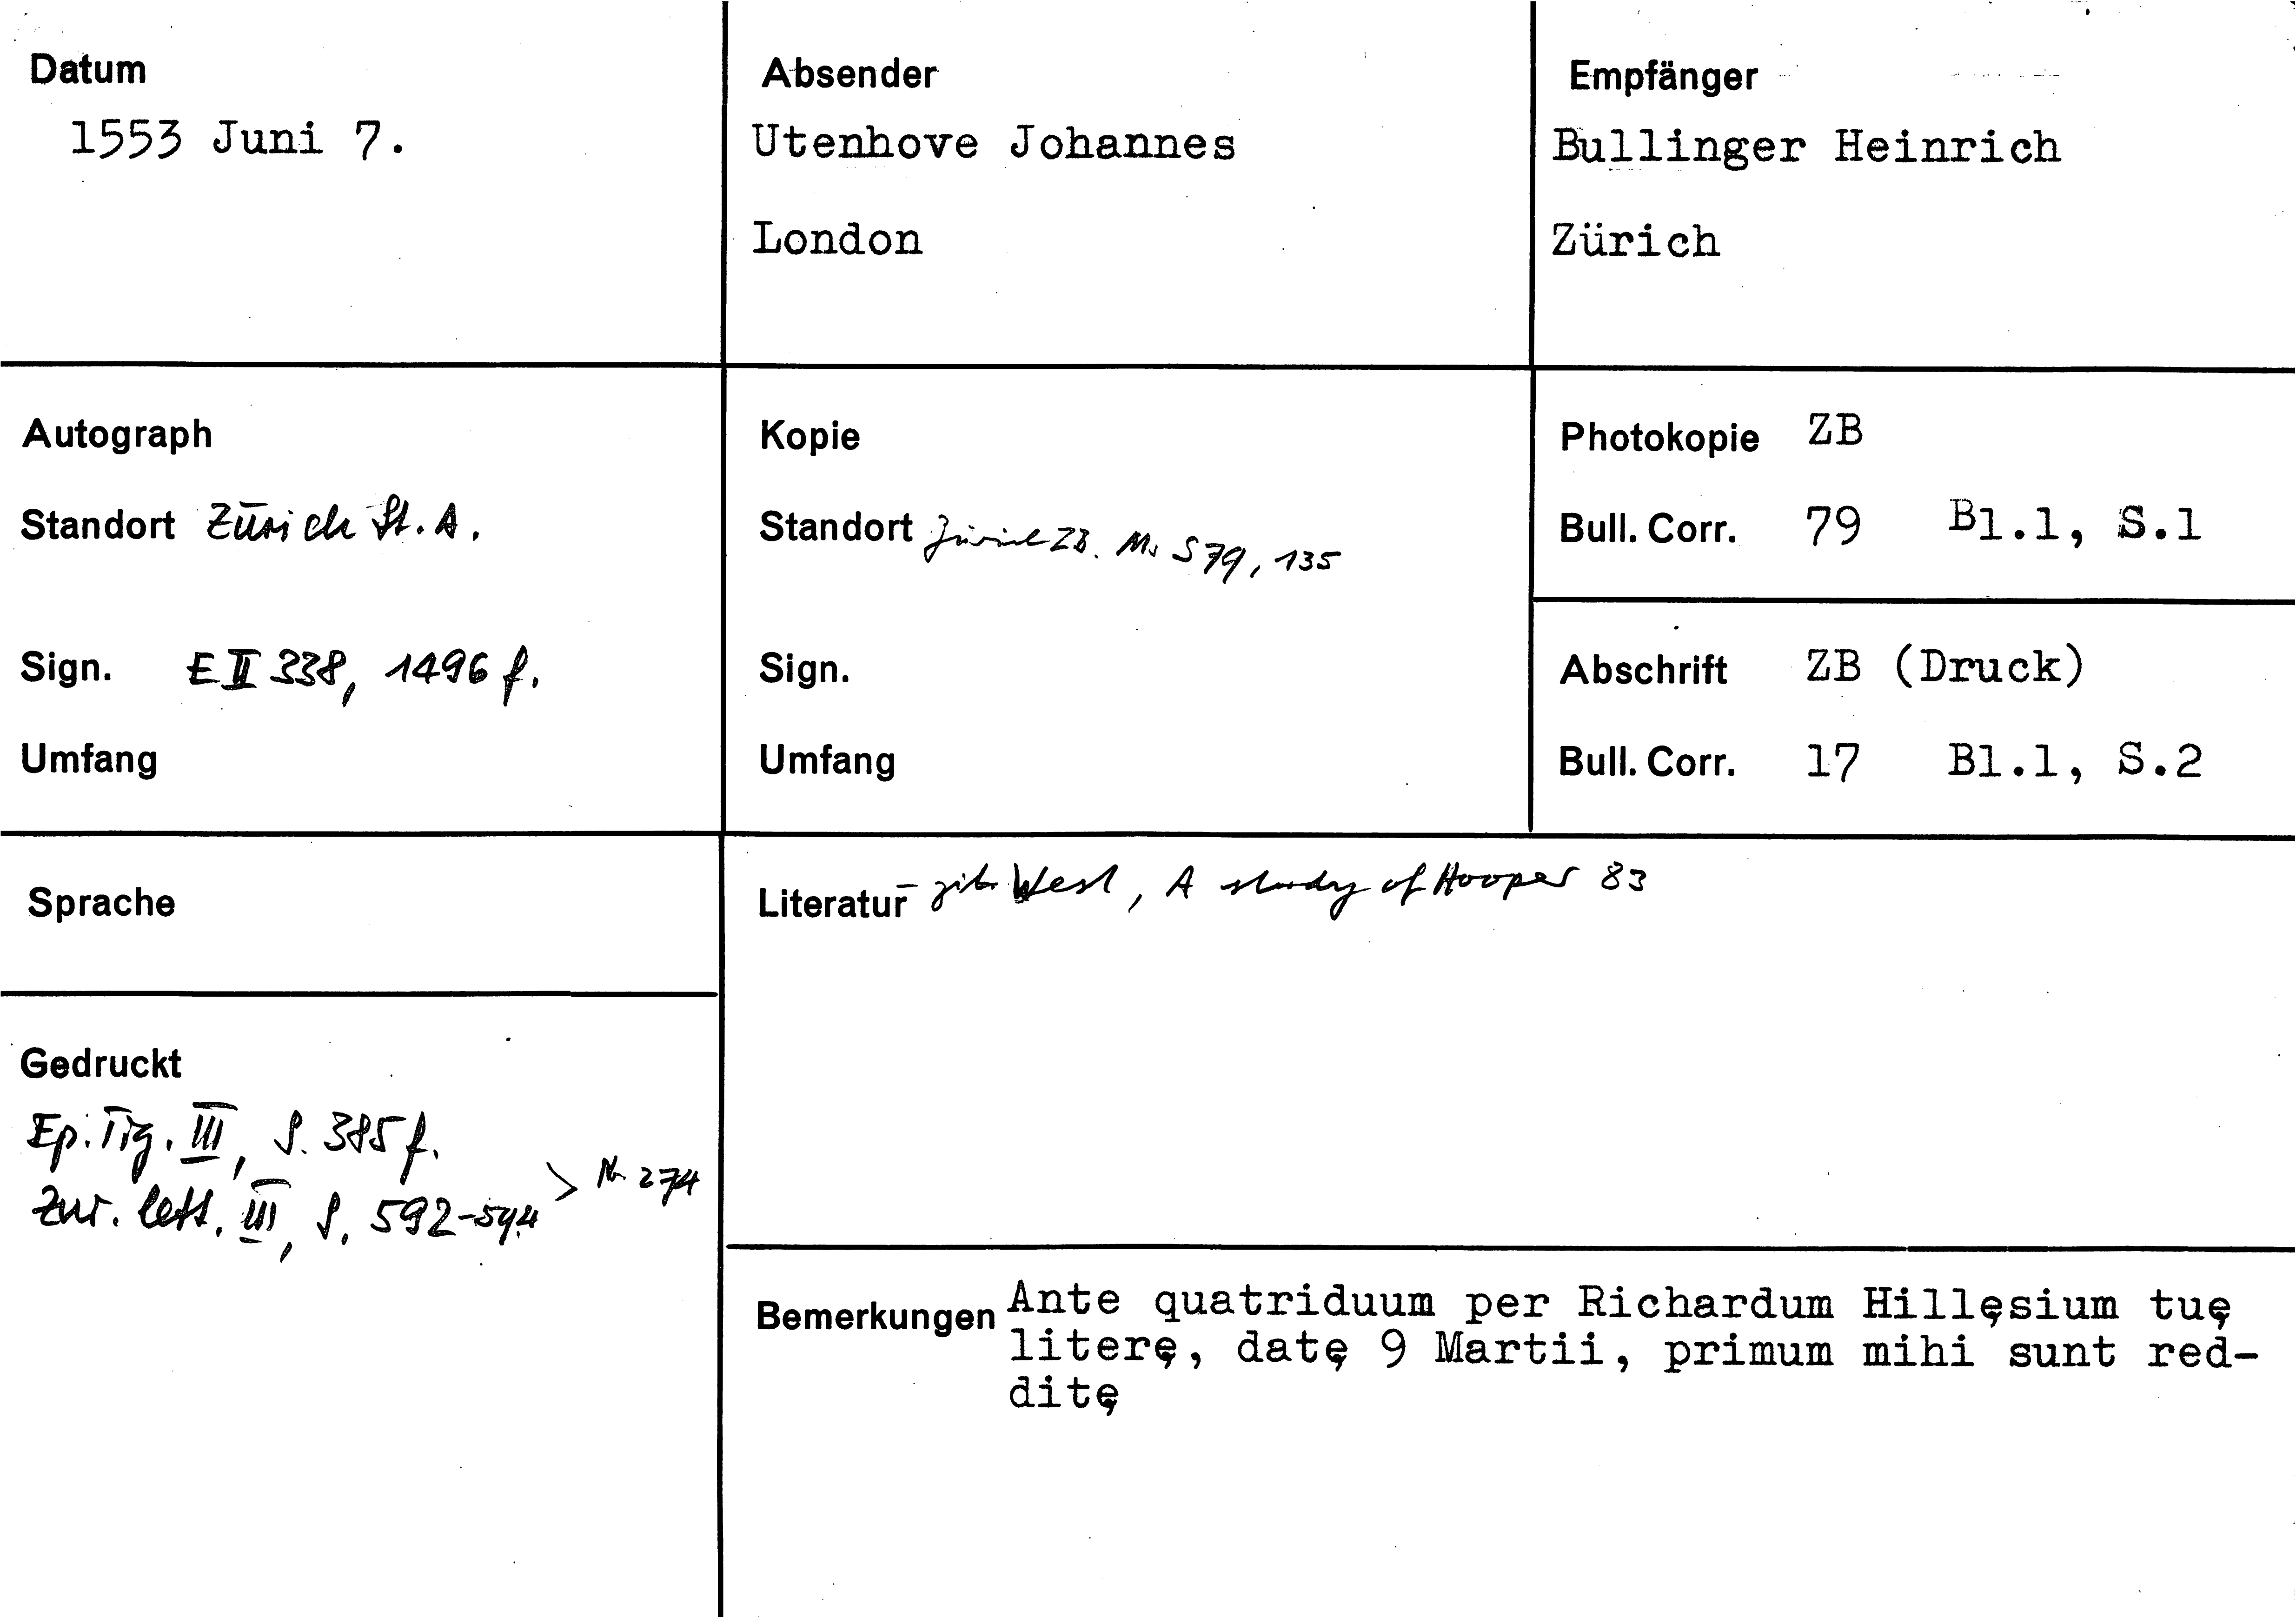 Datum
1553 Juni 7.
Absender
Utenhove Johannes
London
Empfänger
Bullinger Heinrich
Zürich
Autograph
Standort Zürich St. A.
Sign. E II 338, 1496 f.
Umfang
Kopie
Standort Zürich ZB. Ms S 79, 135
Sign.
Umfang
Photokopie ZB
Bull. Corr. 79 Bl.1, S.1
Abschrift ZB (Druck)
Bull. Corr. 17 Bl.1, S.2
Sprache
Literatur - zit. West, A study of Hooper 83
Gedruckt
Ep. Tig. III, S. 385 f.
Zur. lett. III, S. 592-594 > Nr. 274
Bemerkungen Ante quatriduum per Richardum Hillęsium tuę
literę, datę 9 Martii, primum mihi sunt red-
ditę